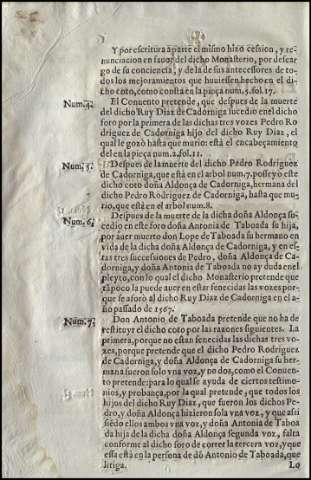 Y por escritura aparte el mismo hizo cession, y re-
nunciacion en fauor del dicho Monasterio, por descar
go de su conciencia, y de la de sus antecessores de to-
dos los mejoramientos que huuiessen hecho en el di
cho coto, como consta en la pieça num.5.fol.17.
Num.4.
El Conuento pretende, que despues de la muerte
del dicho Ruy Diaz de Cadorniga sucedio en el dicho
foro por la primera de las dichas tres vozes Pedro Ro
driguez de Cadorniga hijo del dicho Ruy Diaz, el
qual le gozò hasta que mario: està el encabeçamiento
del en la pieça num.2.fol.11.
Num.5.
Despues de la muerte del dicho Pedro Rodriguez
de Cadorniga, que està en el arbol num.7. posseyò este
dicho coto doña Aldonça de Cadorniga, hermana del
dicho Pedro Rodriguez de Cadorniga, hasta que mu-
rio, que està en el arbol num.8.
Num.6.
Despues de la muerte de la dicha doña Aldonça su-
cedio en este foro doña Antonia de Taboada su hija,
por auer muerto don Lope de Taboada su hermano en
vida de la dicha doña Aldonça de Cadorniga, y en es-
tas tres successiones de Pedro, doña Aldonça de Ca-
dorniga, y doña Antonia de Taboada no ay duda en el
pleyto, con lo qual el dicho Monasterio pretende que
tãpoco la puede auer en estar fenecidas las vozes por-
que se aforò al dicho Ruy Diaz de Cadorniga en el a-
ño passado de 1567.
Num.7.
Don Antonio de Taboada pretende que no ha de
restituyr el dicho coto por las razones siguientes. La
primera, porque no estan fenecidas las dichas tres vo-
zes, porque pretende que el dicho Pedro Rodriguez
de Cadorniga, y doña Aldonça de Cadorniga su her-
mana fueron solo vna voz, y no dos, como el Conuen
to pretende: para lo qual se ayuda de ciertos testimo-
nios, y probança, por la qual pretende, que todos los
hijos del dicho Ruy Diaz, que fueron los dichos Pe-
dro, y doña Aldonça hizieron sola vna voz, y que assi
siẽdo ellos ambos vna voz, y doña Antonia de Taboa
da hija de la dicha doña Aldonça segunda voz, falta
conforme al dicho foro de correr la tercera voz, y que
essa està en la persona de dõ Antonio de Taboada, que
litiga.
Lo